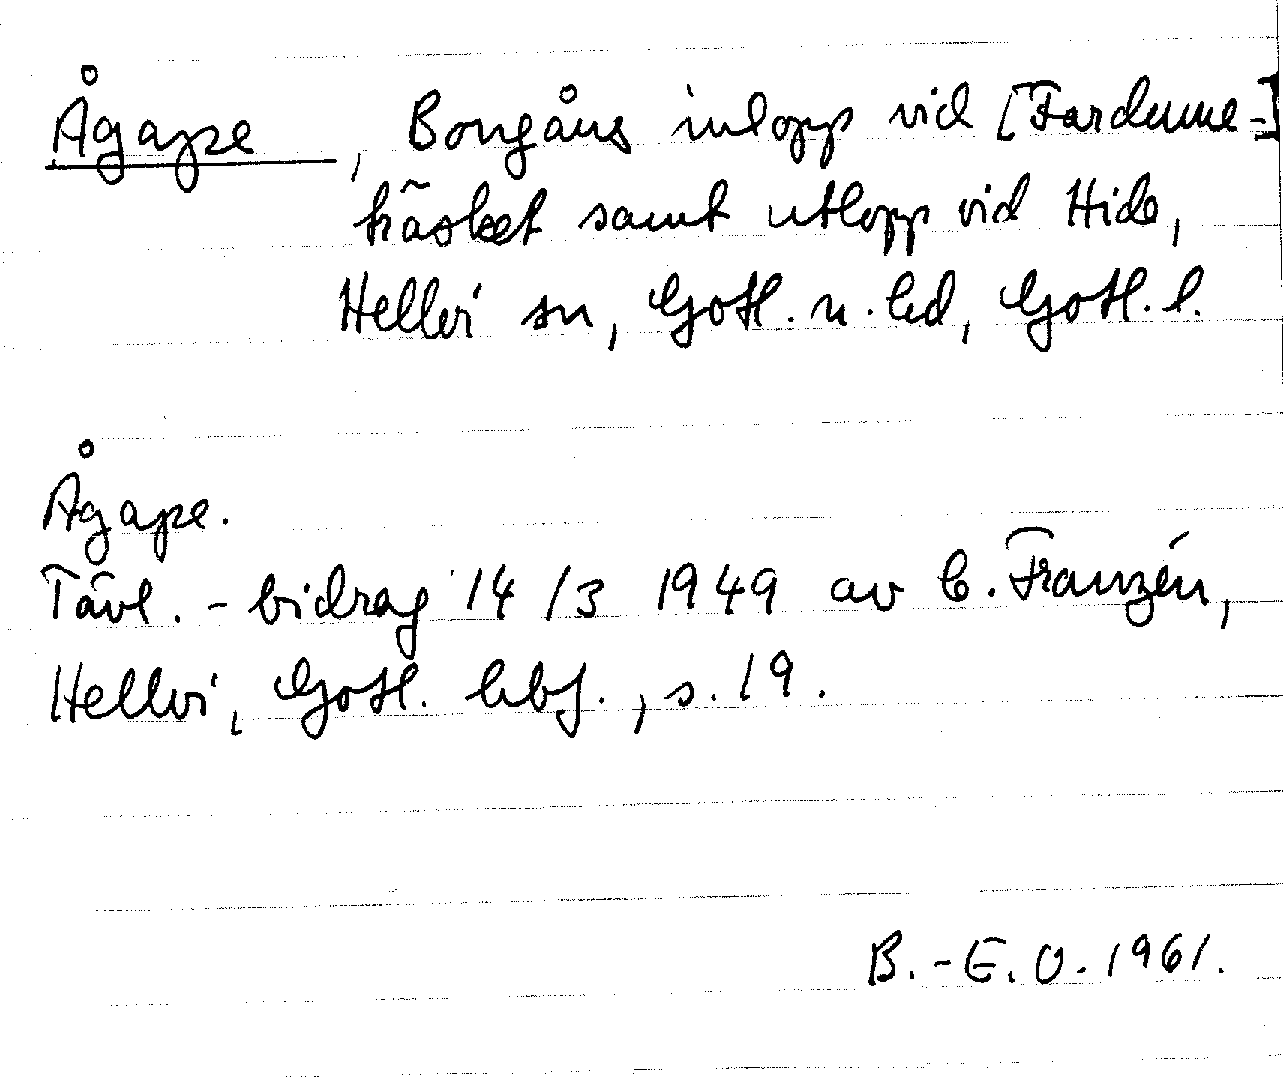 Ågape, Bongåns inlopp vid [Fardume-]
träsket samt utlopp vid Hide,
Hellvi sn, Gotl. n. hd, Gotl. l.
Ågape.
Tävl. - bidrag 14/3 1949 av C. Franzén,
Hellvi, Gotl. hbf., s. 19.
B.-E. O. 1961.